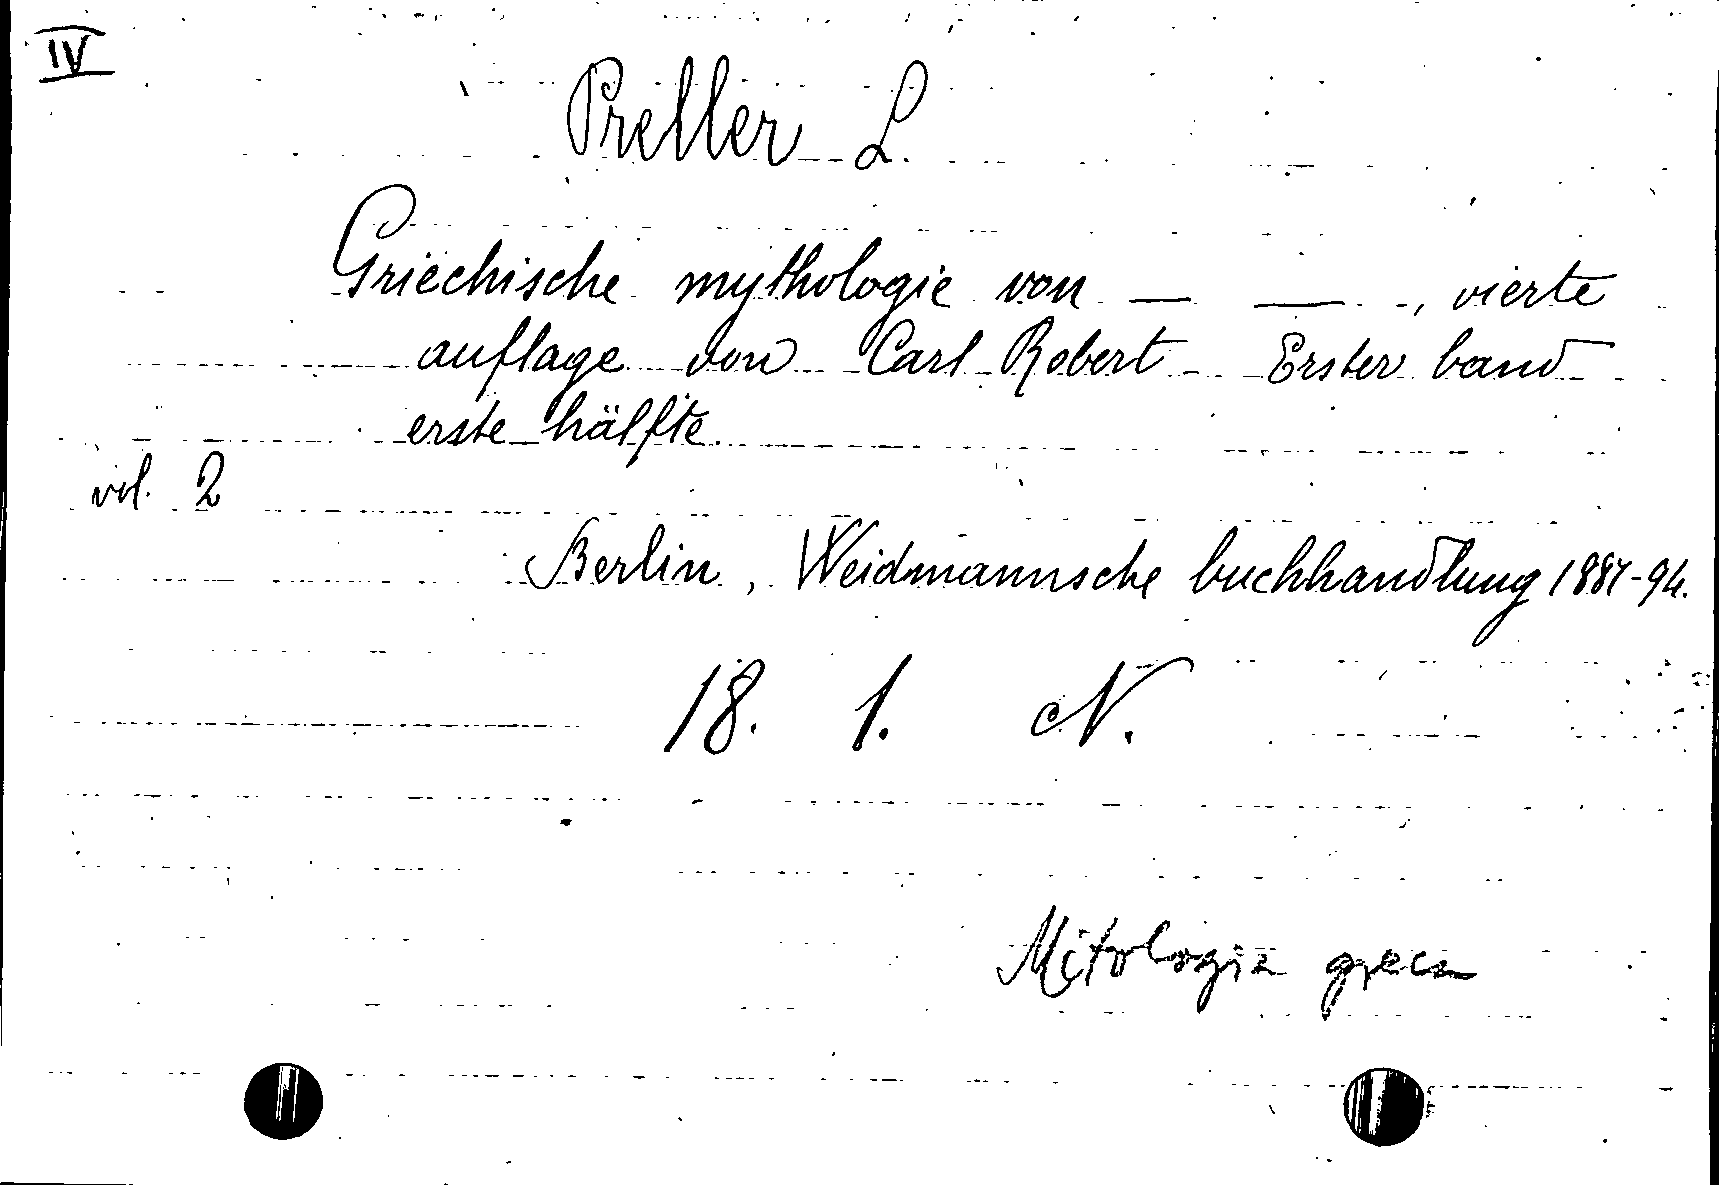 IV
Preller L.
Griechische mythologie von — —, vierte
auflage von Carl Robert Erster band
erste hälfte.
vol. 2
Berlin, Weidmannsche buchhandlung 1887-94.
18. 1. N.
Mitologia greca